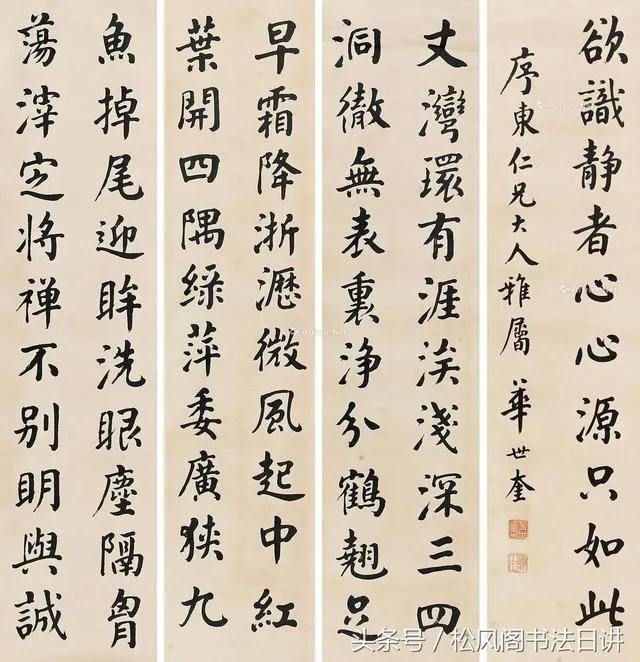 欲識靜者心心源只如此
序東仁兄大人雅屬 華世奎
丈灣環有涯涘淺深三四
洞徹無表裏浄分鶴翹足
早霜降淅瀝微風起中紅
葉開四隅綠萍委廣狹九
魚掉尾迎眸洗眼塵隔胷
蕩滓定將禪不別明與誠
头条号 / 松风阁书法日讲